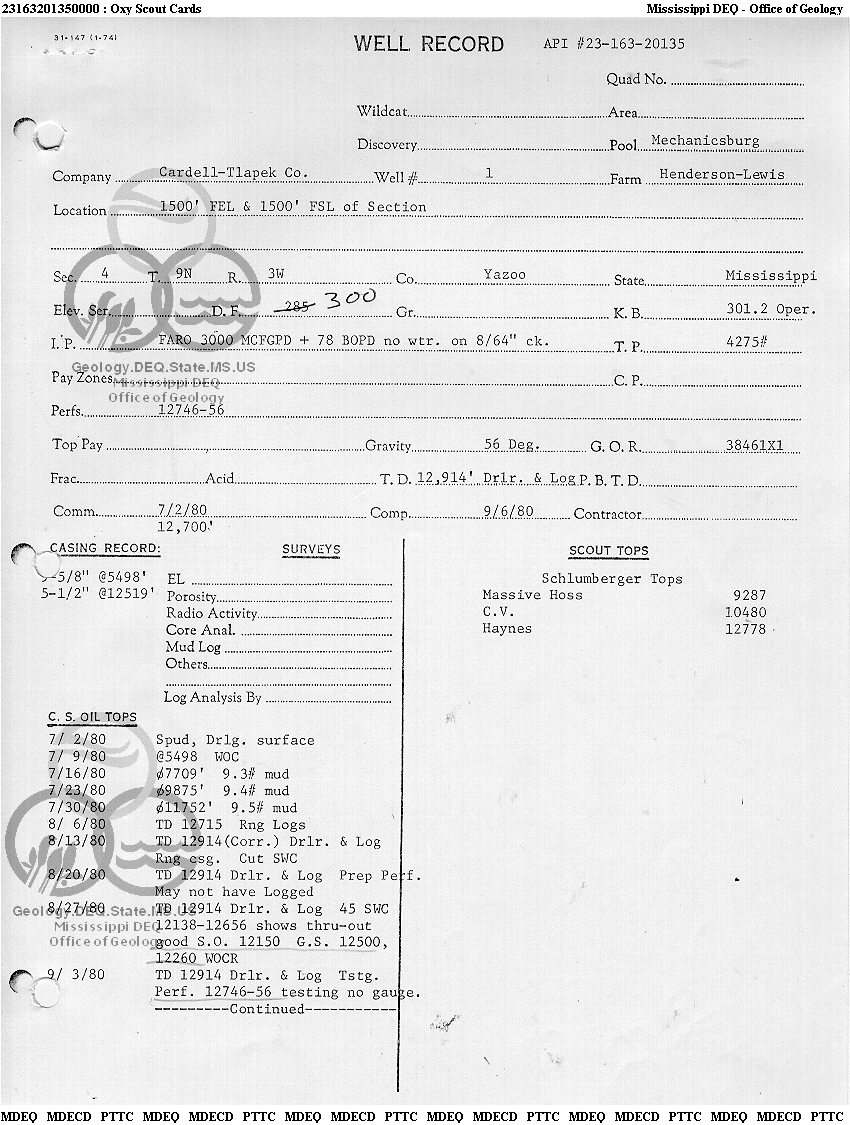 23163201350000 : Oxy Scout Cards Mississippi DEQ - Office of Geology
31-147 (1-74)
WELL RECORD API #23-163-20135
Quad No.
Wildcat Area
Discovery Pool Mechanicsburg
Company Cardell-Tlapek Co. Well # 1 Farm Henderson-Lewis
Location 1500' FEL & 1500' FSL of Section
Sec. 4 T. 9N R. 3W Co. Yazoo State Mississippi
Elev. Ser. D. F. 285 300 Gr. K. B. 301.2 Oper.
I. P. FARO 3000 MCFGPD + 78 BOPD no wtr. on 8/64" ck. T. P. 4275#
Geology.DEQ.State.MS.US
Pay Zones C. P.
Mississippi DEQ
Office of Geology
Perfs. 12746-56
Top Pay Gravity 56 Deg. G. O. R. 38461X1
Frac. Acid T. D. 12,914' Drlr. & Log P. B. T. D.
Comm. 7/2/80 Comp. 9/6/80 Contractor
12,700'
CASING RECORD: SURVEYS SCOUT TOPS
-5/8" @5498' EL Schlumberger Tops
5-1/2" @12519' Porosity Massive Hoss 9287
Radio Activity C.V. 10480
Core Anal. Haynes 12778
Mud Log
Others
Log Analysis By
C. S. OIL TOPS
7/ 2/80 Spud, Drlg. surface
7/ 9/80 @5498 WOC
7/16/80 ϕ7709' 9.3# mud
7/23/80 ϕ9875' 9.4# mud
7/30/80 ϕ11752' 9.5# mud
8/ 6/80 TD 12715 Rng Logs
8/13/80 TD 12914(Corr.) Drlr. & Log
Rng csg. Cut SWC
8/20/80 TD 12914 Drlr. & Log Prep Perf.
May not have Logged
8/27/80 TD 12914 Drlr. & Log 45 SWC
Geology.DEQ.State.MS.US
12138-12656 shows thru-out
Mississippi DEQ
good S.O. 12150 G.S. 12500,
Office of Geology
12260 WOCR
9/ 3/80 TD 12914 Drlr. & Log Tstg.
Perf. 12746-56 testing no gauge.
---------Continued-----------
MDEQ MDECD PTTC MDEQ MDECD PTTC MDEQ MDECD PTTC MDEQ MDECD PTTC MDEQ MDECD PTTC MDEQ MDECD PTTC